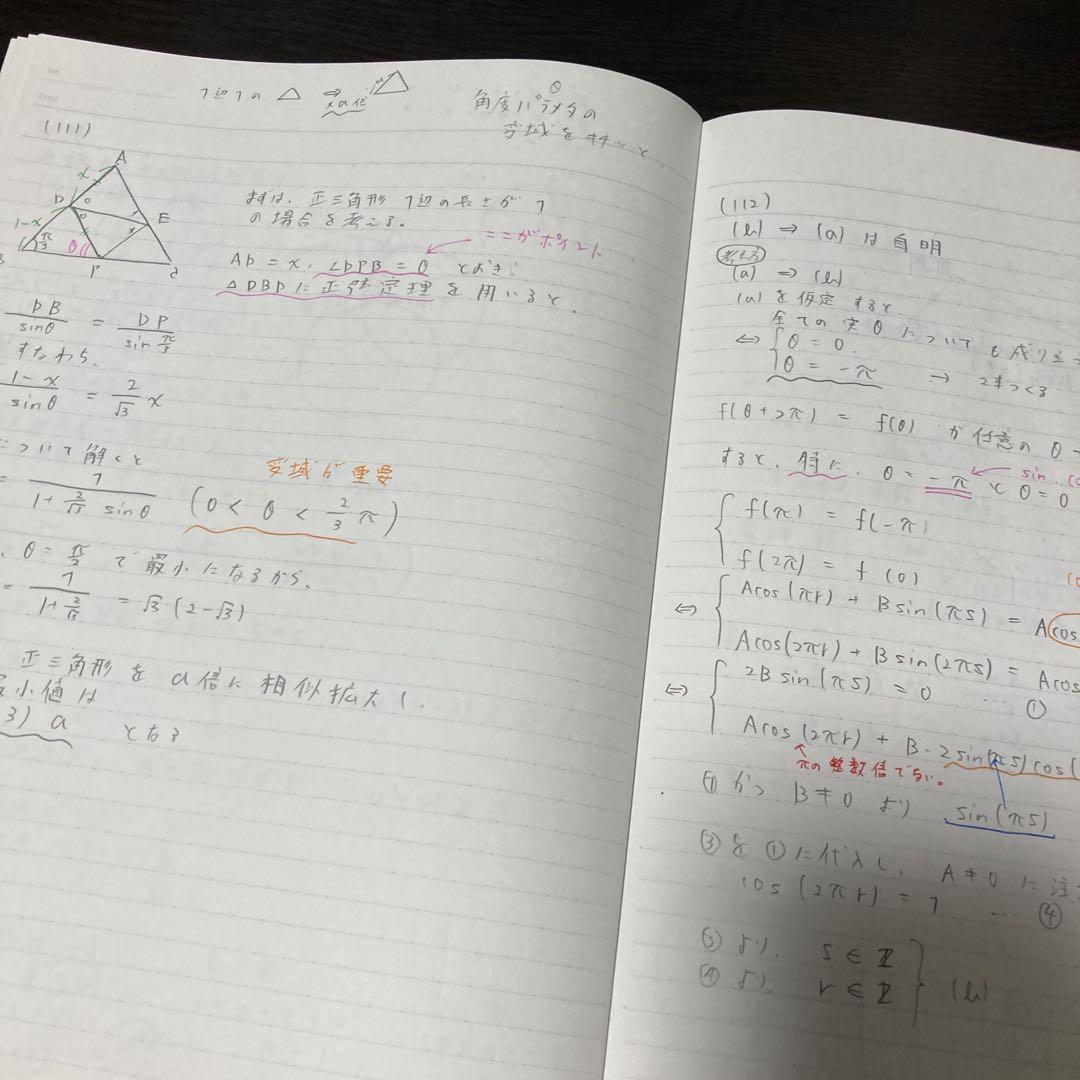 1辺1の △ ⇒ ×a倍 a
θ
角度パラメタの
変域をキチッと
(111)
A
x
D
1-x
E
π/3
θ
B
P
C
まずは、正三角形 1辺の長さが 1
の場合を考える。
ここがポイント
AD = x, ∠DPB = θ とおき、
△DBPに正弦定理を用いると、
DB/sinθ = DP/sin π/3
すなわち、
1-x/sinθ = 2/√3 x
について解くと
変域が重要
= 1/(1+2/√3 sinθ) (0 < θ < 2/3 π)
θ = π/2 で最小になるから、
= 1/(1+2/√3) = √3 (2-√3)
正三角形を a倍に相似拡大し、
最小値は
3) a となる
(112)
(b) → (a) は自明
(a) → (b)
(a) を仮定すると、
全ての実θについても成り立
⇔ { θ = 0
θ = -π → 2本つくる
f(θ+2π) = f(θ) が任意のθ
すると、特に、θ = -π と θ = 0
sin, co
{ f(π) = f(-π)
f(2π) = f(0)
⇔ { Acos(πr) + Bsin(πs) = Acos
Acos(2πr) + Bsin(2πs) = Acos
⇔ { 2Bsin(πs) = 0 … ①
Acos(2πr) + B・2sin(πs)cos(
πの整数倍でない。
① かつ B≠0 より sin(πs)
③を①に代入し、A≠0に注
cos(2πr) = 1 … ④
③より、 s∈Z
④より、 r∈Z } (b)